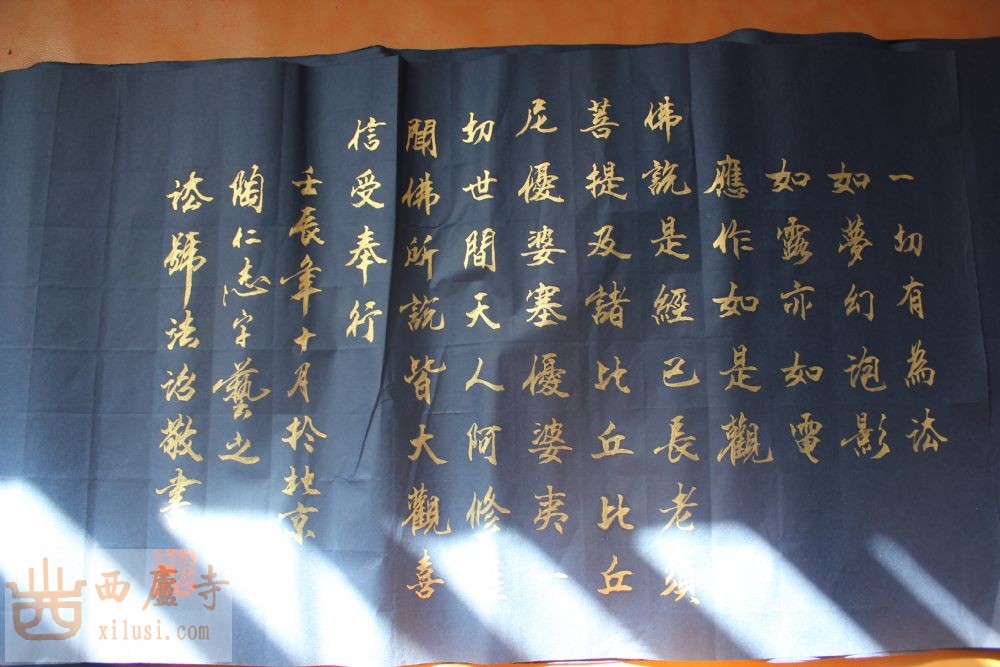 一切有為法
如夢幻泡影
如露亦如電
應作如是觀
佛說是經已長老須
菩提及諸比丘比丘
尼優婆塞優婆夷一
切世間天人阿修羅
聞佛所說皆大觀喜
信受奉行
壬辰年十月於北京
陶仁志字藝之
法號法敬書
西廬寺
xilusi.com